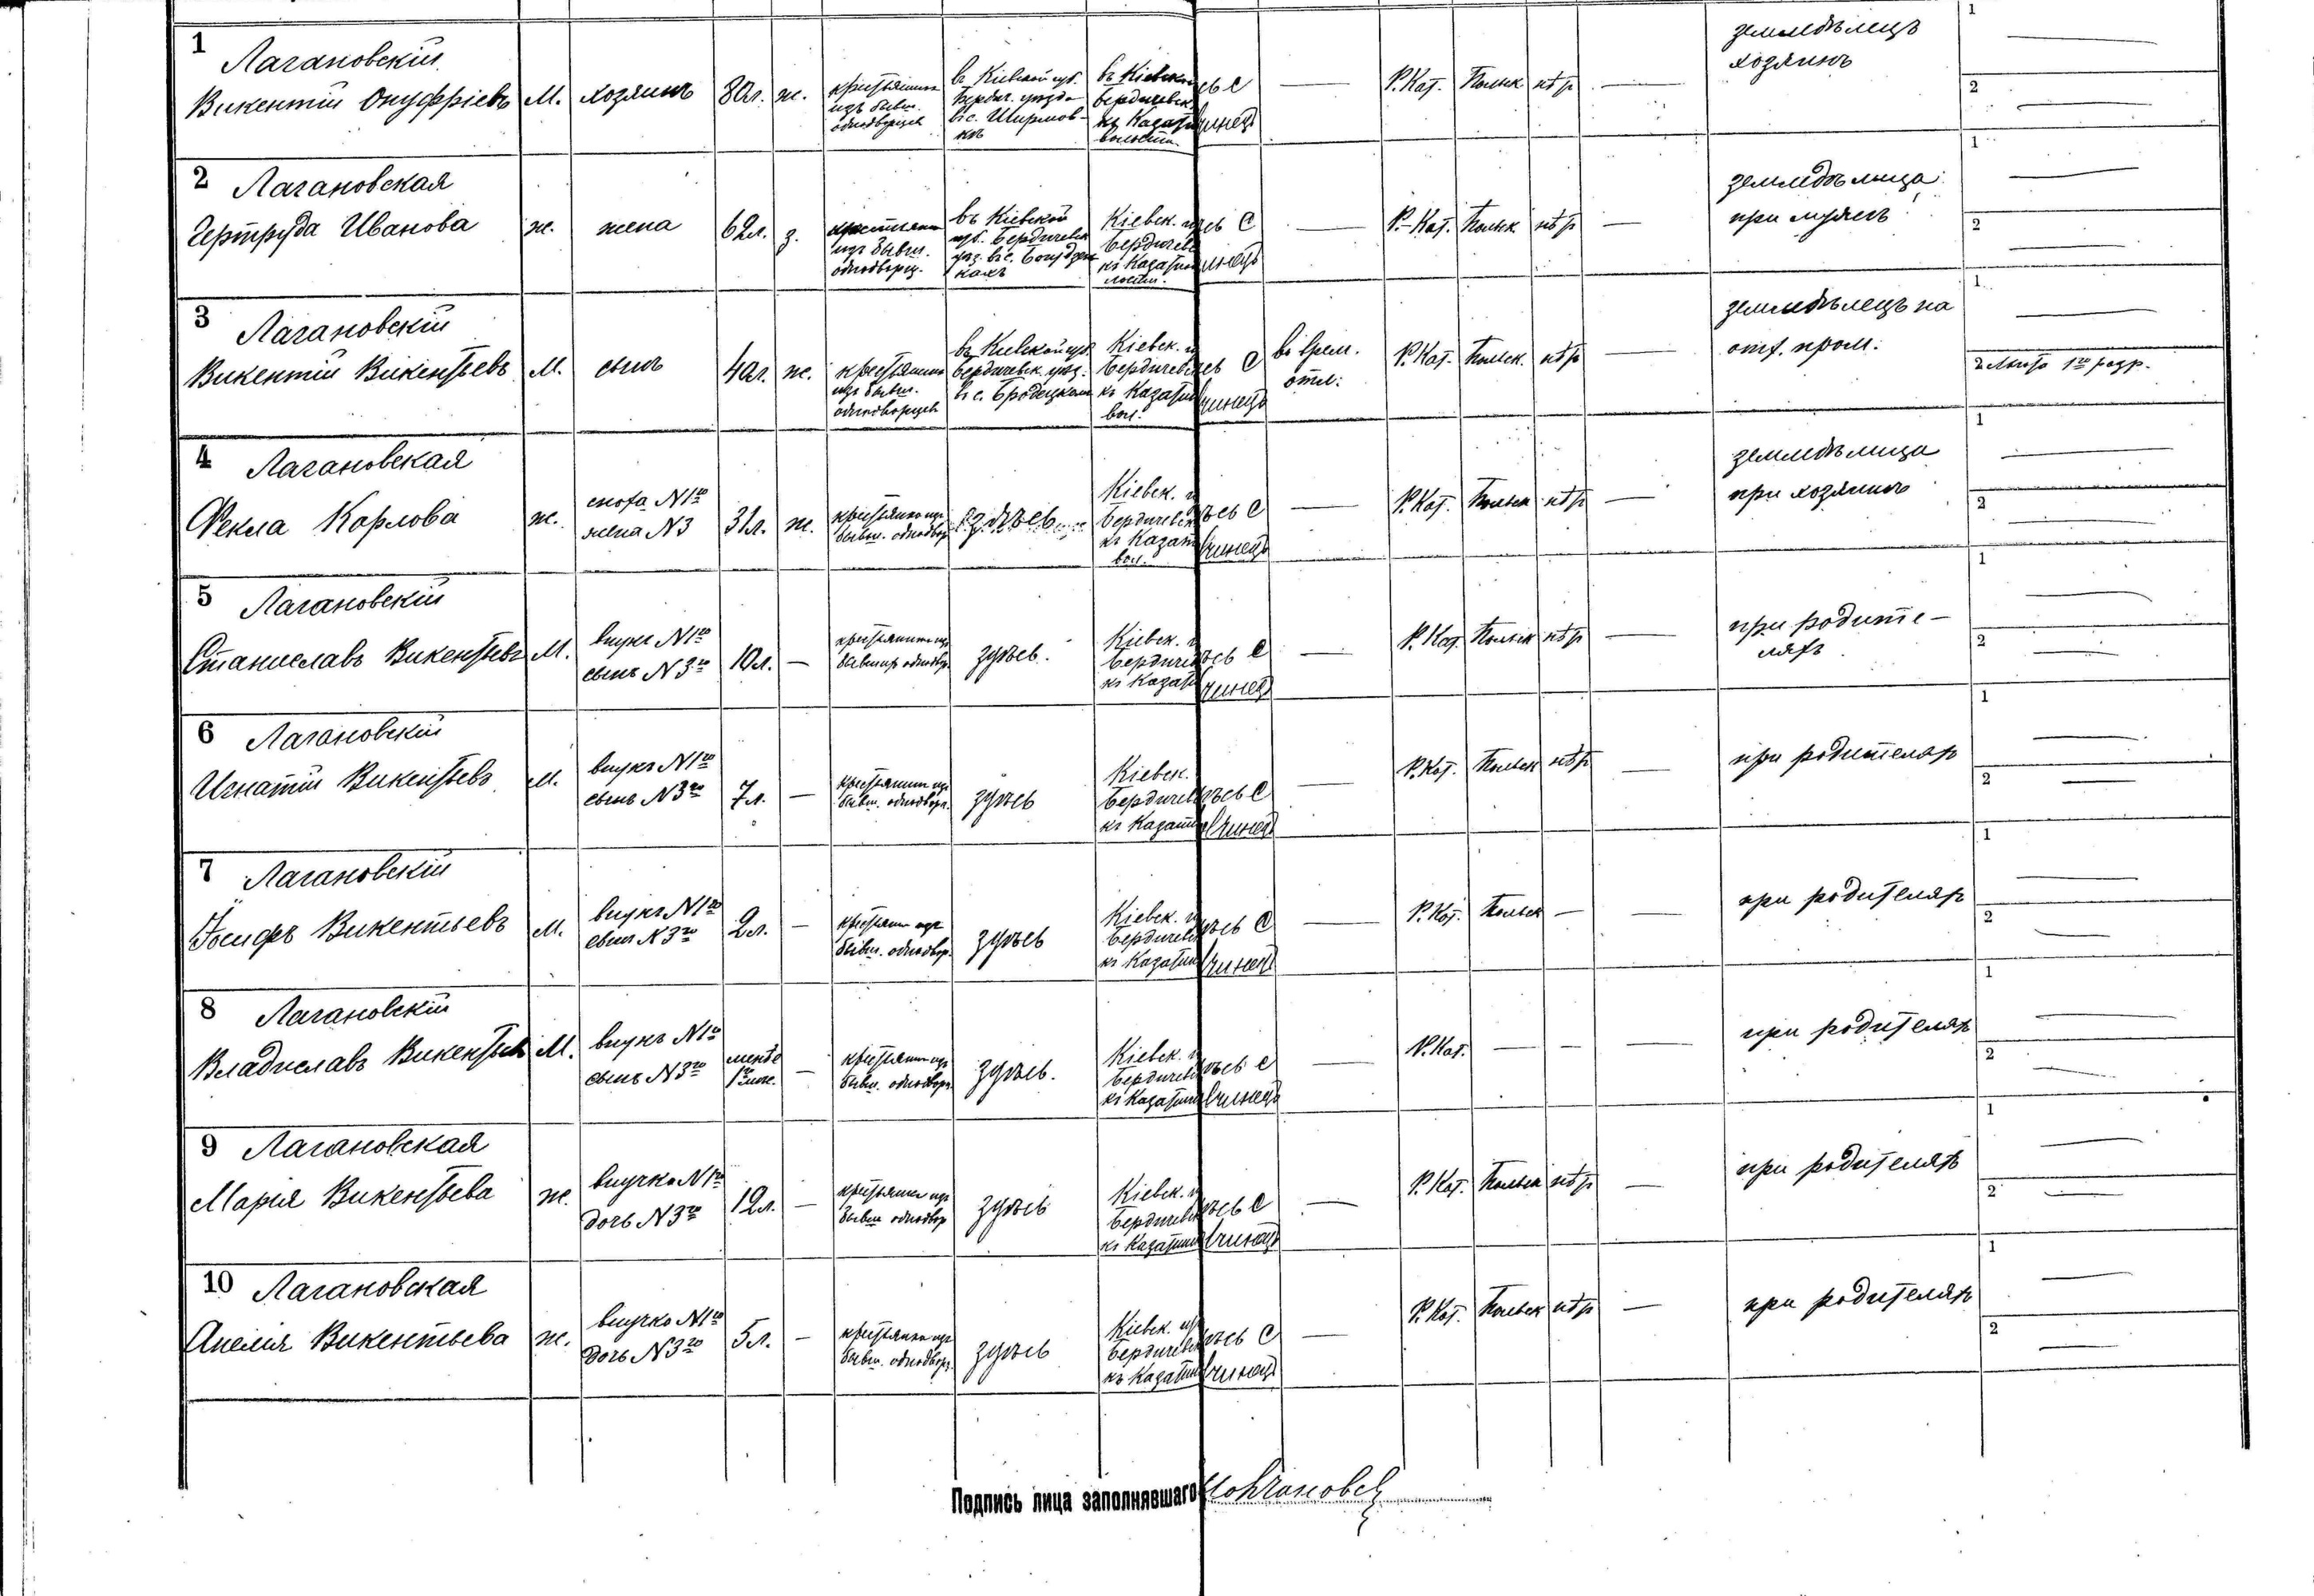 1
Лагановскій
Викентій Онуфріевъ М. хозяинъ 80л. ж. крестьянинъ изъ бывш. однодворцевъ въ Кіевской губ. Бердич. уезда въ с. Ширмовкѣ въ Кіевской Бердичевск. къ Казат волости. Р. Кат. Польск нѣтъ земледѣлецъ хозяинъ
1
2
2 Лагановская
Гертруда Иванова ж. жена 62л. з. изъ бывш. однодворц. въ Кіевской губ. Бердичевск уез. въ с. Кіевск. Бердичевс къ Казатин Р.-Кат. Польск. нѣтъ земледѣлица при мужѣ
1
2
3 Лагановскій
Викентій Викентьевъ М. сынъ 40л. ж. крестьянинъ изъ бывш. однодворцевъ въ Кіевской губ. Бердичевск. уезд. въ с. Бродецкомъ Кіевск. Бердичевс къ Казатин вол. въ врем. отл. Р. Кат. Польск. нѣтъ земледѣлецъ на
1
2
4 Лагановская
Фекла Карлова ж. сноха N 1го жена N 3 31л. ж. крестьянка изъ бывш. однодвор здѣсь Кіевск. Бердичевск къ Казат вол. Р. Кат. Польск нѣтъ земледѣлица при хозяинѣ
1
2
5 Лагановскій
Станиславъ Викентьевъ М. внукъ N 1го сынъ N 3го 10л. — крестьянинъ изъ бывшихъ однодвор. здѣсь. Кіевск. Бердичев къ Казат Р. Кат. Польск нѣтъ при родителяхъ
1
2
6 Лагановскій
Игнатій Викентьевъ М. внукъ N 1го сынъ N 3го 7л. — крестьянинъ изъ бывш. однодворц. здѣсь Кіевск. Бердичев къ Казатин Р. Кат. Польск нѣтъ при родителяхъ
1
2
7 Лагановскій
Іосифъ Викентьевъ М. внукъ N 1го сынъ N 3го 2л. — крестьянин изъ бывш. однодвор. здѣсь Кіевск. Бердичевс къ Казатин Р. Кат. Польск — — при родителяхъ
1
2
8 Лагановскій
Владиславъ Викентьевъ М. внукъ N 1го сынъ N 3го — крестьянин изъ бывш. однодворц. здѣсь. Кіевск. Бердичевс къ Казатин Р. Кат. — — — при родителяхъ
1
2
9 Лагановская
Марія Викентьева ж. внучка N 1го дочь N 3го 12л. — крестьянка изъ бывш однодвор здѣсь Кіевск. Бердичевс къ Казатин Р. Кат. Польск нѣтъ — при родителяхъ
1
2
10 Лагановская
Анелія Викентьева ж. внучка N 1го дочь N 3го 5л. — крестьянка изъ бывш. однодворц. здѣсь Кіевск. Бердичевск къ Казатин Р. Кат. Польск нѣтъ — при родителяхъ
1
2
Подпись лица заполнявшаго